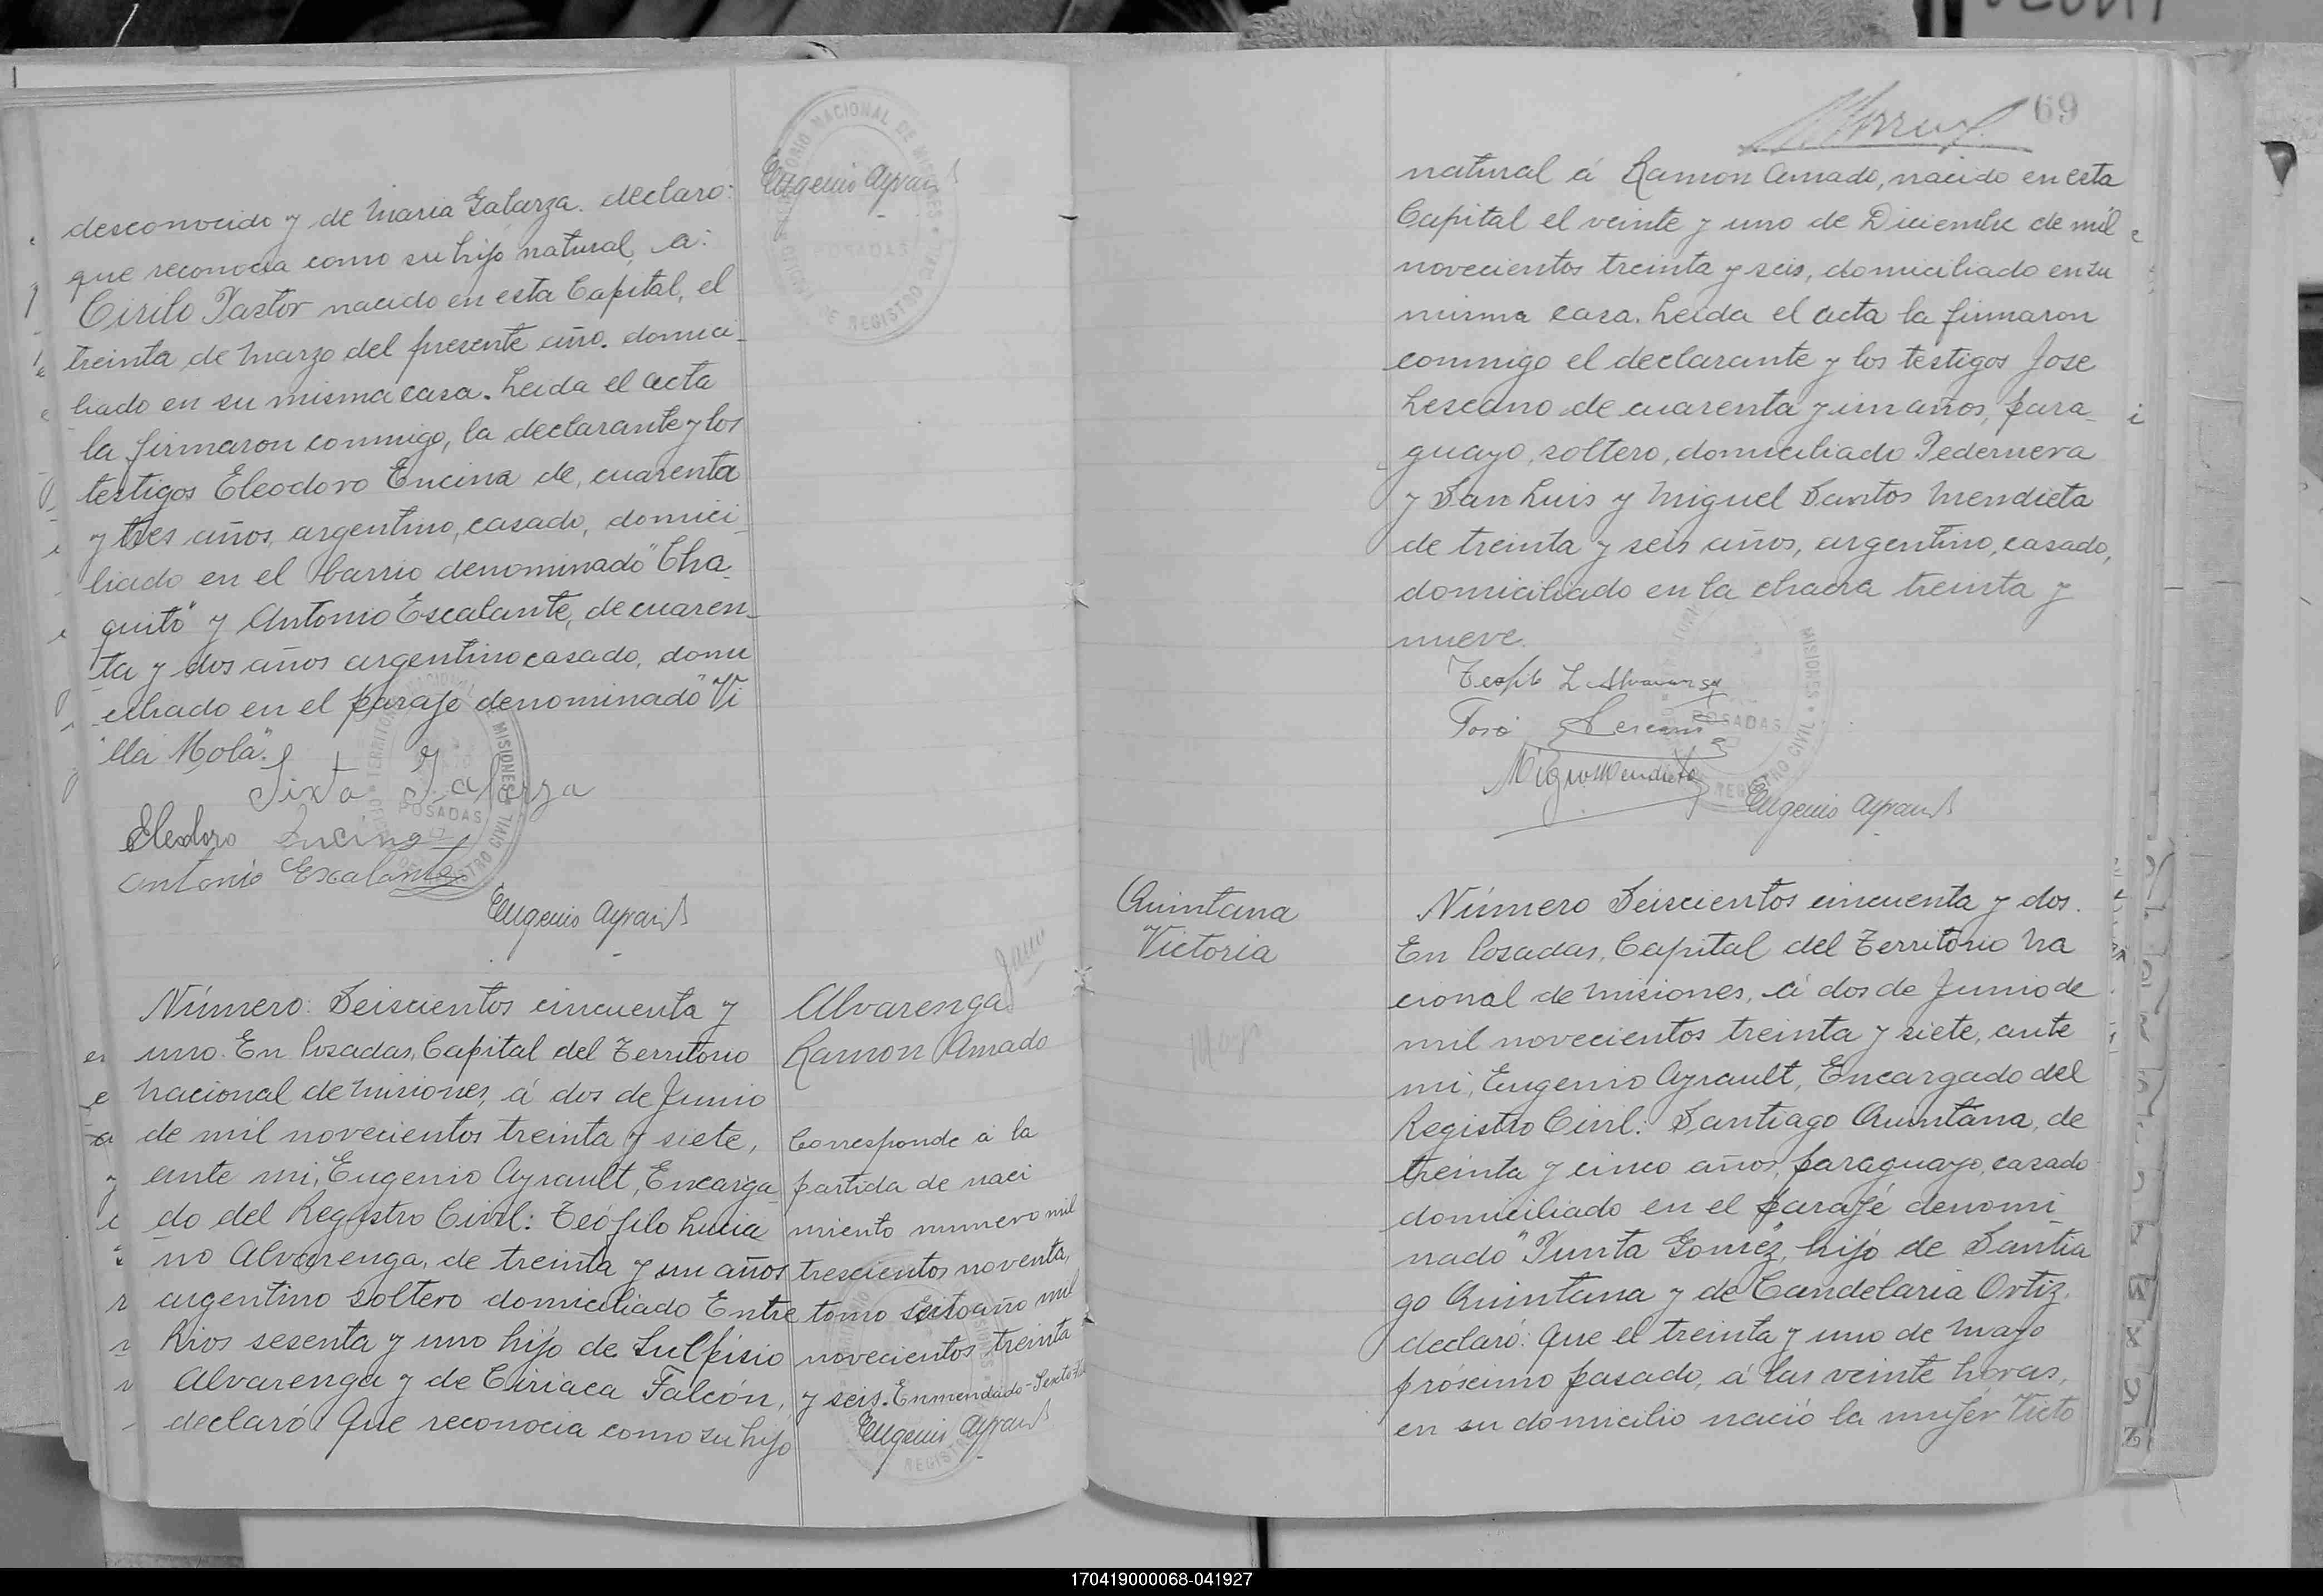 desconocido y de Maria Galarza. declaro:
que reconocia como su hijo natural, a:
Cirilo Pastor nacido en esta Capital, el
treinta de Marzo del presente año. domici-
liado en su misma casa. Leida el acta
la firmaron conmigo, la declarante y los
testigos Eleodoro Encina de, cuarenta
y tres años, argentino, casado, domici-
liado en el barrio denominado "Cha-
quito" y Antonio Escalante, de cuaren-
ta y dos años argentino casado, domi
ciliado en el paraje denominado "Vi
lla Mola".
Sixta Galarza
Eleodoro Encina
Antonio Escalante
Eugenio Ayrault
Eugenio Ayrault
TERRITORIO NACIONAL DE MISIONES
POSADAS
REGISTRO CIVIL
Número: Seiscientos cincuenta y
uno. En Posadas, Capital del Territorio
Nacional de Misiones, á dos de Junio
de mil novecientos treinta y siete,
ante mi, Eugenio Ayrault, Encarga-
do del Registro Civil: Teófilo Lucia
no Alvarenga, de treinta y un años
argentino soltero domiciliado Entre
Rios sesenta y uno hijo de Sulpisio
Alvarenga y de Ciriaca Falcón,
declaró: Que reconocia como su hijo
Alvarenga
Ramon Amado
Corresponde á la
partida de naci
miento numero mil
trescientos noventa,
tomo sexto año mil
novecientos treinta
y seis. Enmendado-Sexto-
Eugenio Ayrault
69
natural á Ramon Amado, nacido en esta
Capital el veinte y uno de Diciembre de mil
novecientos treinta y seis, domiciliado en su
misma casa. Leida el acta la firmaron
conmigo el declarante y los testigos Jose
Lescano de cuarenta y un años, para-
guayo, soltero, domiciliado Pedernera
y San Luis y Miguel Santos Mendieta
de treinta y seis años, argentino, casado,
domiciliado en la chacra treinta y
nueve.
Teofilo L Alvarenga
José Lescano
Miguel Mendieta
Eugenio Ayrault
MISIONES
POSADAS
REGISTRO CIVIL
Quintana
Victoria
Número Seiscientos cincuenta y dos.
En Posadas, Capital del Territorio Na
cional de Misiones, á dos de Junio de
mil novecientos treinta y siete, ante
mi, Eugenio Ayrault, Encargado del
Registro Civil: Santiago Quintana, de
treinta y cinco años, paraguayo, casado
domiciliado en el paraje denomi
nado "Punta Gomez", hijo de Santia
go Quintana y de Candelaria Ortiz.
declaró: Que el treinta y uno de Mayo
próximo pasado, á las veinte horas,
en su domicilio nació la mujer Victo
170419000068-041927